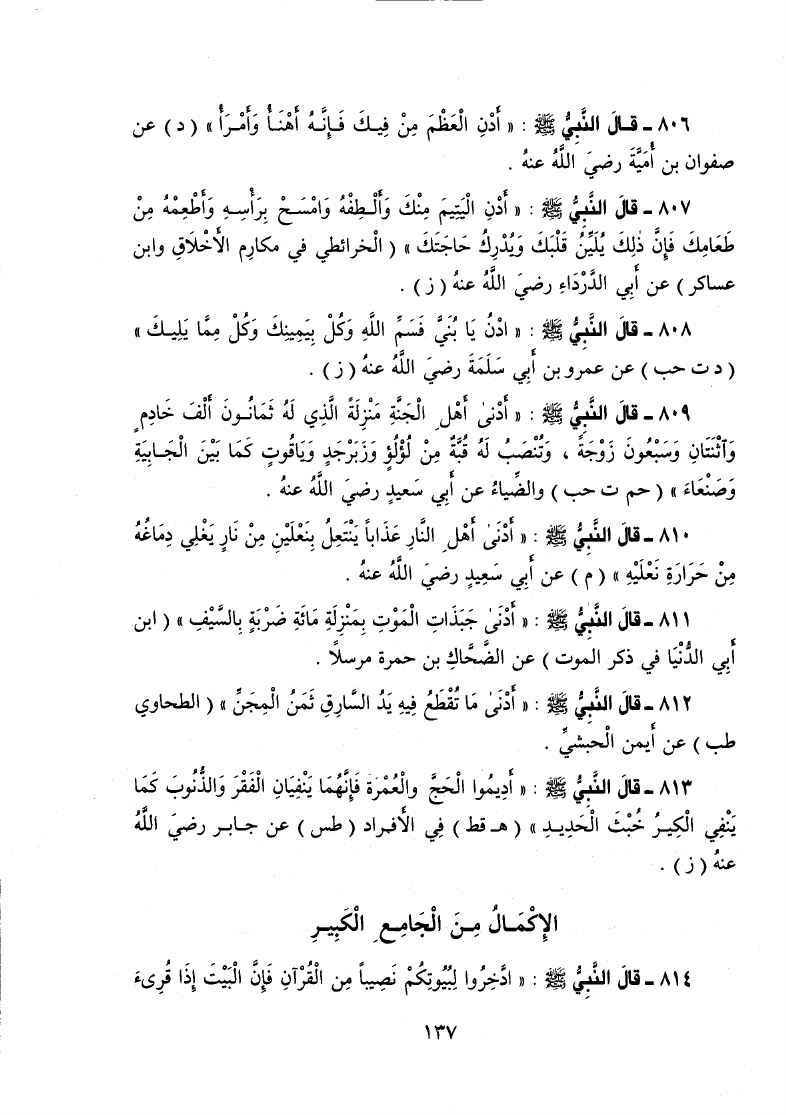 ٨٠٦ ـ قـالَ النَّبِيُّ ﷺ : « أَدْنِ الْعَظْمَ مِنْ فِيـكَ فَـإِنَّـهُ أَهْنَـأُ وَأَمْـرَأُ » ( د ) عن
صفوان بن أُمَيَّةَ رضيَ اللَّهُ عنهُ .
٨٠٧ ـ قالَ النَّبِيُّ ﷺ : « أَدْنِ الْيَتِيمَ مِنْكَ وَأَلْـطِفْهُ وَامْسَـحْ بِرَأْسِـهِ وَأَطْعِمْهُ مِنْ
طَعَامِكَ فَإِنَّ ذٰلِكَ يُلَيِّنُ قَلْبَكَ وَيُدْرِكُ حَاجَتَكَ » ( الْخرائطي في مكارم الأَخْلَاقِ وابن
عساكر ) عن أَبي الدَّرْدَاءِ رضيَ اللَّهُ عنهُ ( ز ) .
٨٠٨ ـ قالَ النَّبِيُّ ﷺ : « ادْنُ يَا بُنَيَّ فَسَمِّ اللَّهِ وَكُلْ بِيَمِينِكَ وَكُلْ مِمَّا يَلِيـكَ »
( د ت حب ) عن عمرو بن أَبي سَلَمَةَ رضيَ اللَّهُ عنهُ ( ز ) .
٨٠٩ ـ قالَ النَّبِيُّ ﷺ : « أَدْنىٰ أَهْلِ الْجَنَّةِ مَنْزِلَةً الَّذِي لَهُ ثَمَانُـونَ أَلْفَ خَادِمٍ
وَآثْنَتَانِ وَسَبْعُونَ زَوْجَةً ، وَتُنْصَبُ لَهُ قُبَّةٌ مِنْ لُؤْلُؤٍ وَزَبَرْجَدٍ وَيَاقُوتٍ كَمَا بَيْنَ الْجَـابِيَةِ
وَصَنْعَاءَ » ( حم ت حب ) والضِّياءُ عن أَبي سَعيدٍ رضيَ اللَّهُ عنهُ .
٨١٠ ـ قالَ النَّبِيُّ ﷺ : « أَدْنىٰ أَهْلِ النَّارِ عَذَاباً يَنْتَعِلُ بِنَعْلَيْنِ مِنْ نَارٍ يَغْلِي دِمَاغُهُ
مِنْ حَرَارَةِ نَعْلَيْهِ » ( م ) عن أَبي سَعِيدٍ رضيَ اللَّهُ عنهُ .
٨١١ ـ قالَ النَّبِيُّ ﷺ : « أَدْنىٰ جَبَذَاتِ الْمَوْتِ بِمَنْزِلَةِ مَائَةِ ضَرْبَةٍ بِالسَّيْفِ » ( ابن
أَبي الدُّنْيَا في ذكر الموت ) عن الضَّحَّاكِ بن حمرة مرسلاً .
٨١٢ ـ قالَ النَّبِيُّ ﷺ : « أَدْنىٰ مَا تُقْطَعُ فِيهِ يَدُ السَّارِقِ ثَمَنُ الْمِجَنِّ » ( الطحاوي
طب ) عن أَيمن الْحبشيِّ .
٨١٣ ـ قالَ النَّبِيُّ ﷺ : « أَدِيمُوا الْحَجَّ والْعُمْرَةَ فَإِنَّهُمَا يَنْفِيَانِ الْفَقْرَ وَالذُّنُوبَ كَمَا
يَنْفِي الْكِيـرُ خُبْثَ الْحَدِيـدِ » ( هـ قط ) فِي الأَفْرادِ ( طس ) عن جابـر رضيَ اللَّهُ
عنهُ ( ز ) .
الإِكْمَـالُ مِـنَ الْجَامِعِ الْكَبِيـرِ
٨١٤ ـ قالَ النَّبِيُّ ﷺ : « ادَّخِرُوا لِبُيُوتِكُمْ نَصِيباً مِن الْقُرْآنِ فَإِنَّ الْبَيْتَ إِذَا قُرِىءَ
١٣٧